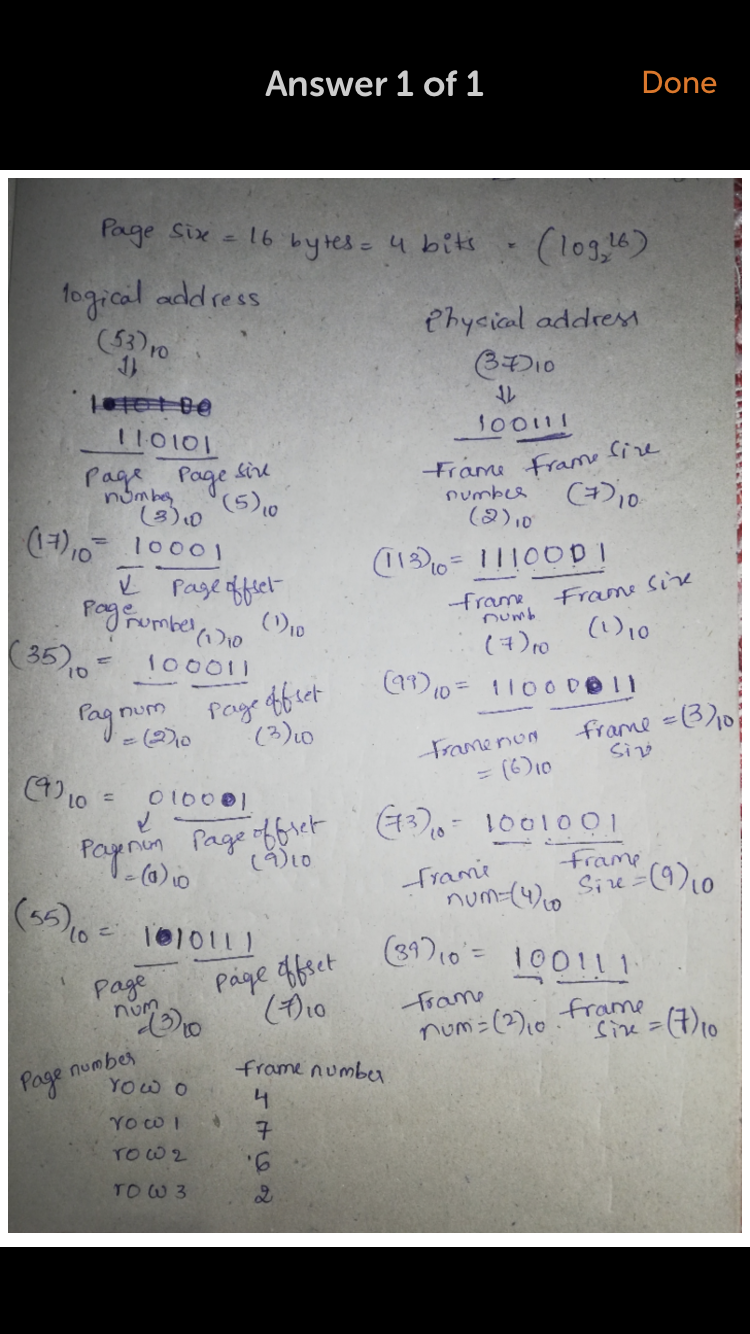 Answer 1 of 1
Done
Page size = 16 bytes = 4 bits = (log₂16)
logical address
(53)10
⇓
110101
Page number (3)10
Page size (5)10
(17)10 = 10001
Page number (1)10
Page offset (1)10
(35)10 = 100011
Pag num = (2)10
Page offset (3)10
(9)10 = 010001
Page num = (0)10
Page offset (9)10
(55)10 = 1010111
Page num = (3)10
Page offset (7)10
Physical address
(37)10
⇓
100111
Frame number (2)10
Frame size (7)10
(113)10 = 1110001
frame numb (7)10
Frame size (1)10
(99)10 = 11000011
frame num = (6)10
frame size = (3)10
(73)10 = 1001001
frame num = (4)10
frame size = (9)10
(39)10 = 100111
frame num = (2)10
frame size = (7)10
Page number frame number
row 0 4
row 1 7
row 2 6
row 3 2